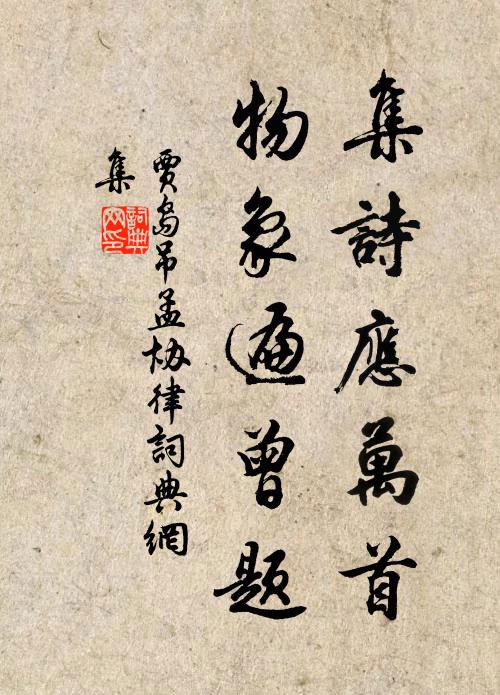 集詩應萬首
物象遍曾題
賈島吊孟协律詞典網
集
詞典
网印